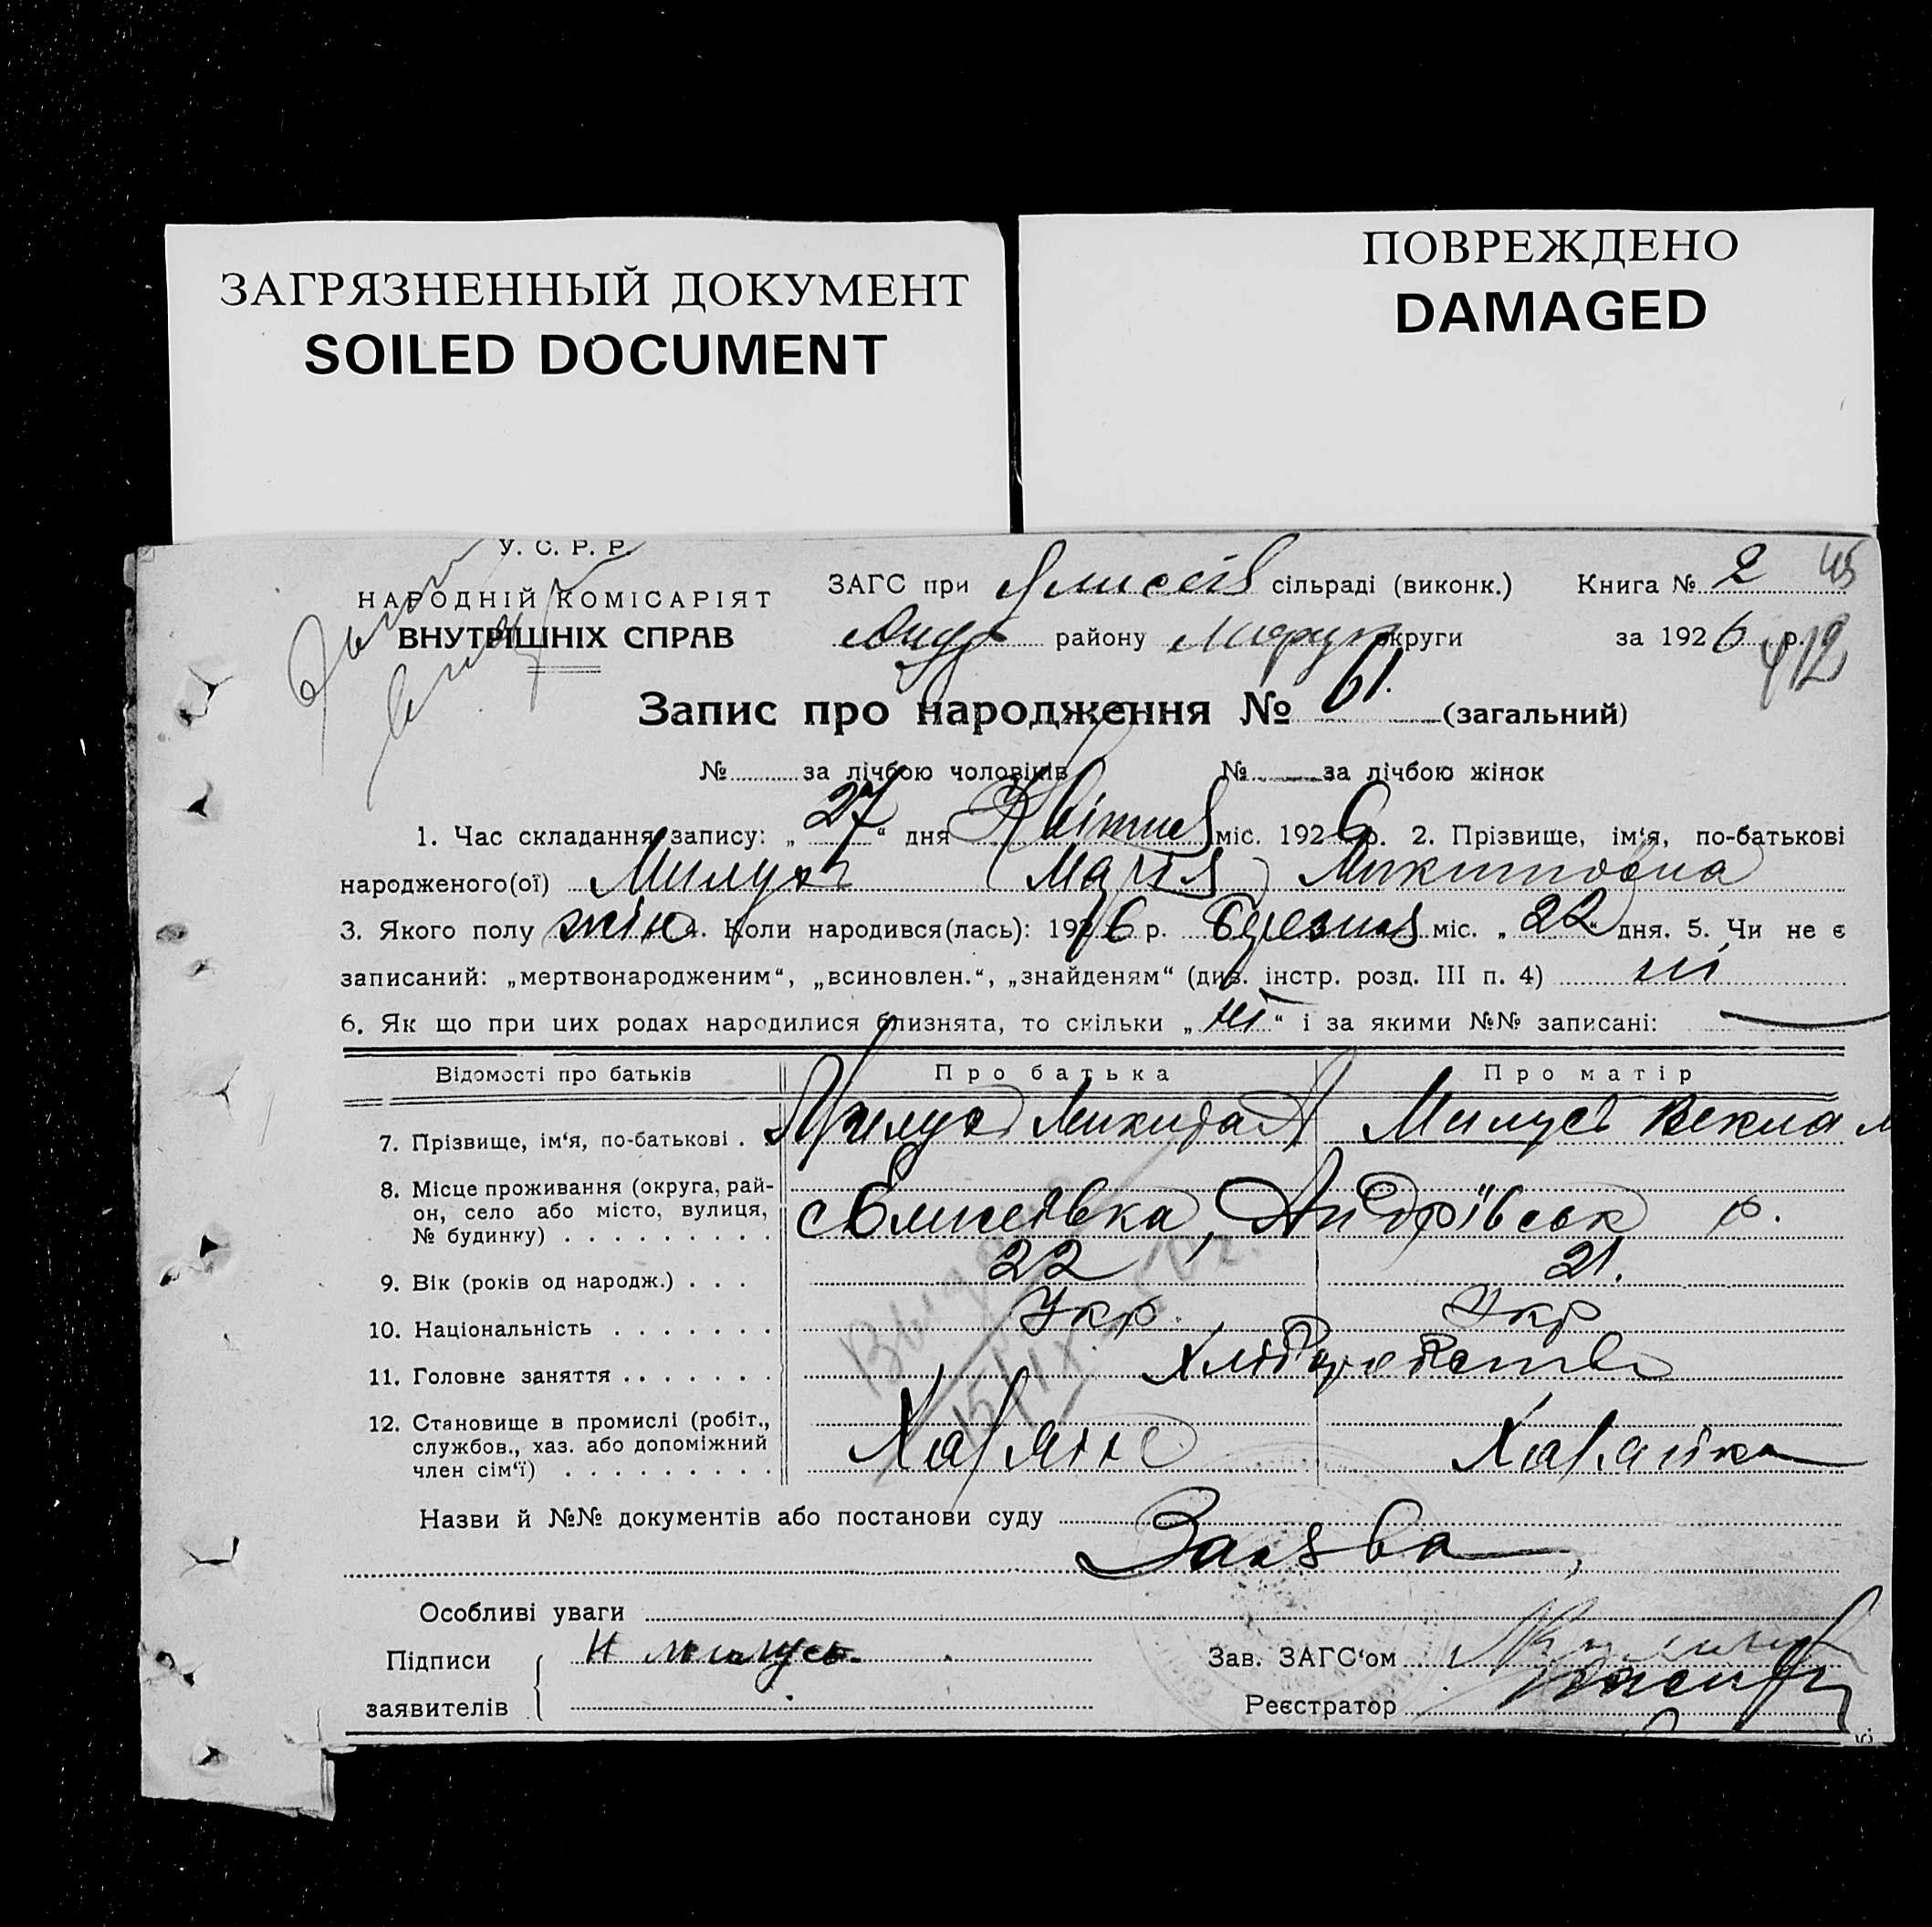 ЗАГРЯЗНЕННЫЙ ДОКУМЕНТ
SOILED DOCUMENT
ПОВРЕЖДЕНО
DAMAGED
У. С. Р. Р.
НАРОДНІЙ КОМІСАРІЯТ
ВНУТРІШНІХ СПРАВ
ЗАГС при сільраді (виконк.) Книга № 2
району округи за 1926 р.
412
Запис про народження № 61. (загальний)
№ за лічбою чоловіків № за лічбою жінок
1. Час складання запису: „27“ дня Квітня міс. 1926 р. 2. Прізвище, ім‘я, по-батькові
народженого(ої) Милусь Марія Микитовна
3. Якого полу жін 4. Коли народився(лась): 1926 р. Березня міс. „22“ дня. 5. Чи не є
записаний: „мертвонародженим“, „всиновлен.“, „знайденям“ (див. інстр. розд. III п. 4) ні
6. Як що при цих родах народилися близнята, то скільки „ні“ і за якими №№ записані: —
Відомості про батьків Про батька Про матір
7. Прізвище, ім‘я, по-батькові . Милусь Микита А Милусь Векла М
8. Місце проживання (округа, рай-
он, село або місто, вулиця,
№ будинку) . . . . . . . . . с Елисеївка, Андріївськ р.
9. Вік (років од народж.) . . . 22 21.
10. Національність . . . . . . . Укр. Укр
11. Головне заняття . . . . . . . Хліборобство
12. Становище в промислі (робіт.,
службов., хаз. або допоміжний
член сім‘ї) . . . . . . . . . Хазяїн Хазяйка
Назви й №№ документів або постанови суду
Заява
Особливі уваги
Підписи Н Милусь Зав. ЗАГС‘ом
заявителів Реєстратор